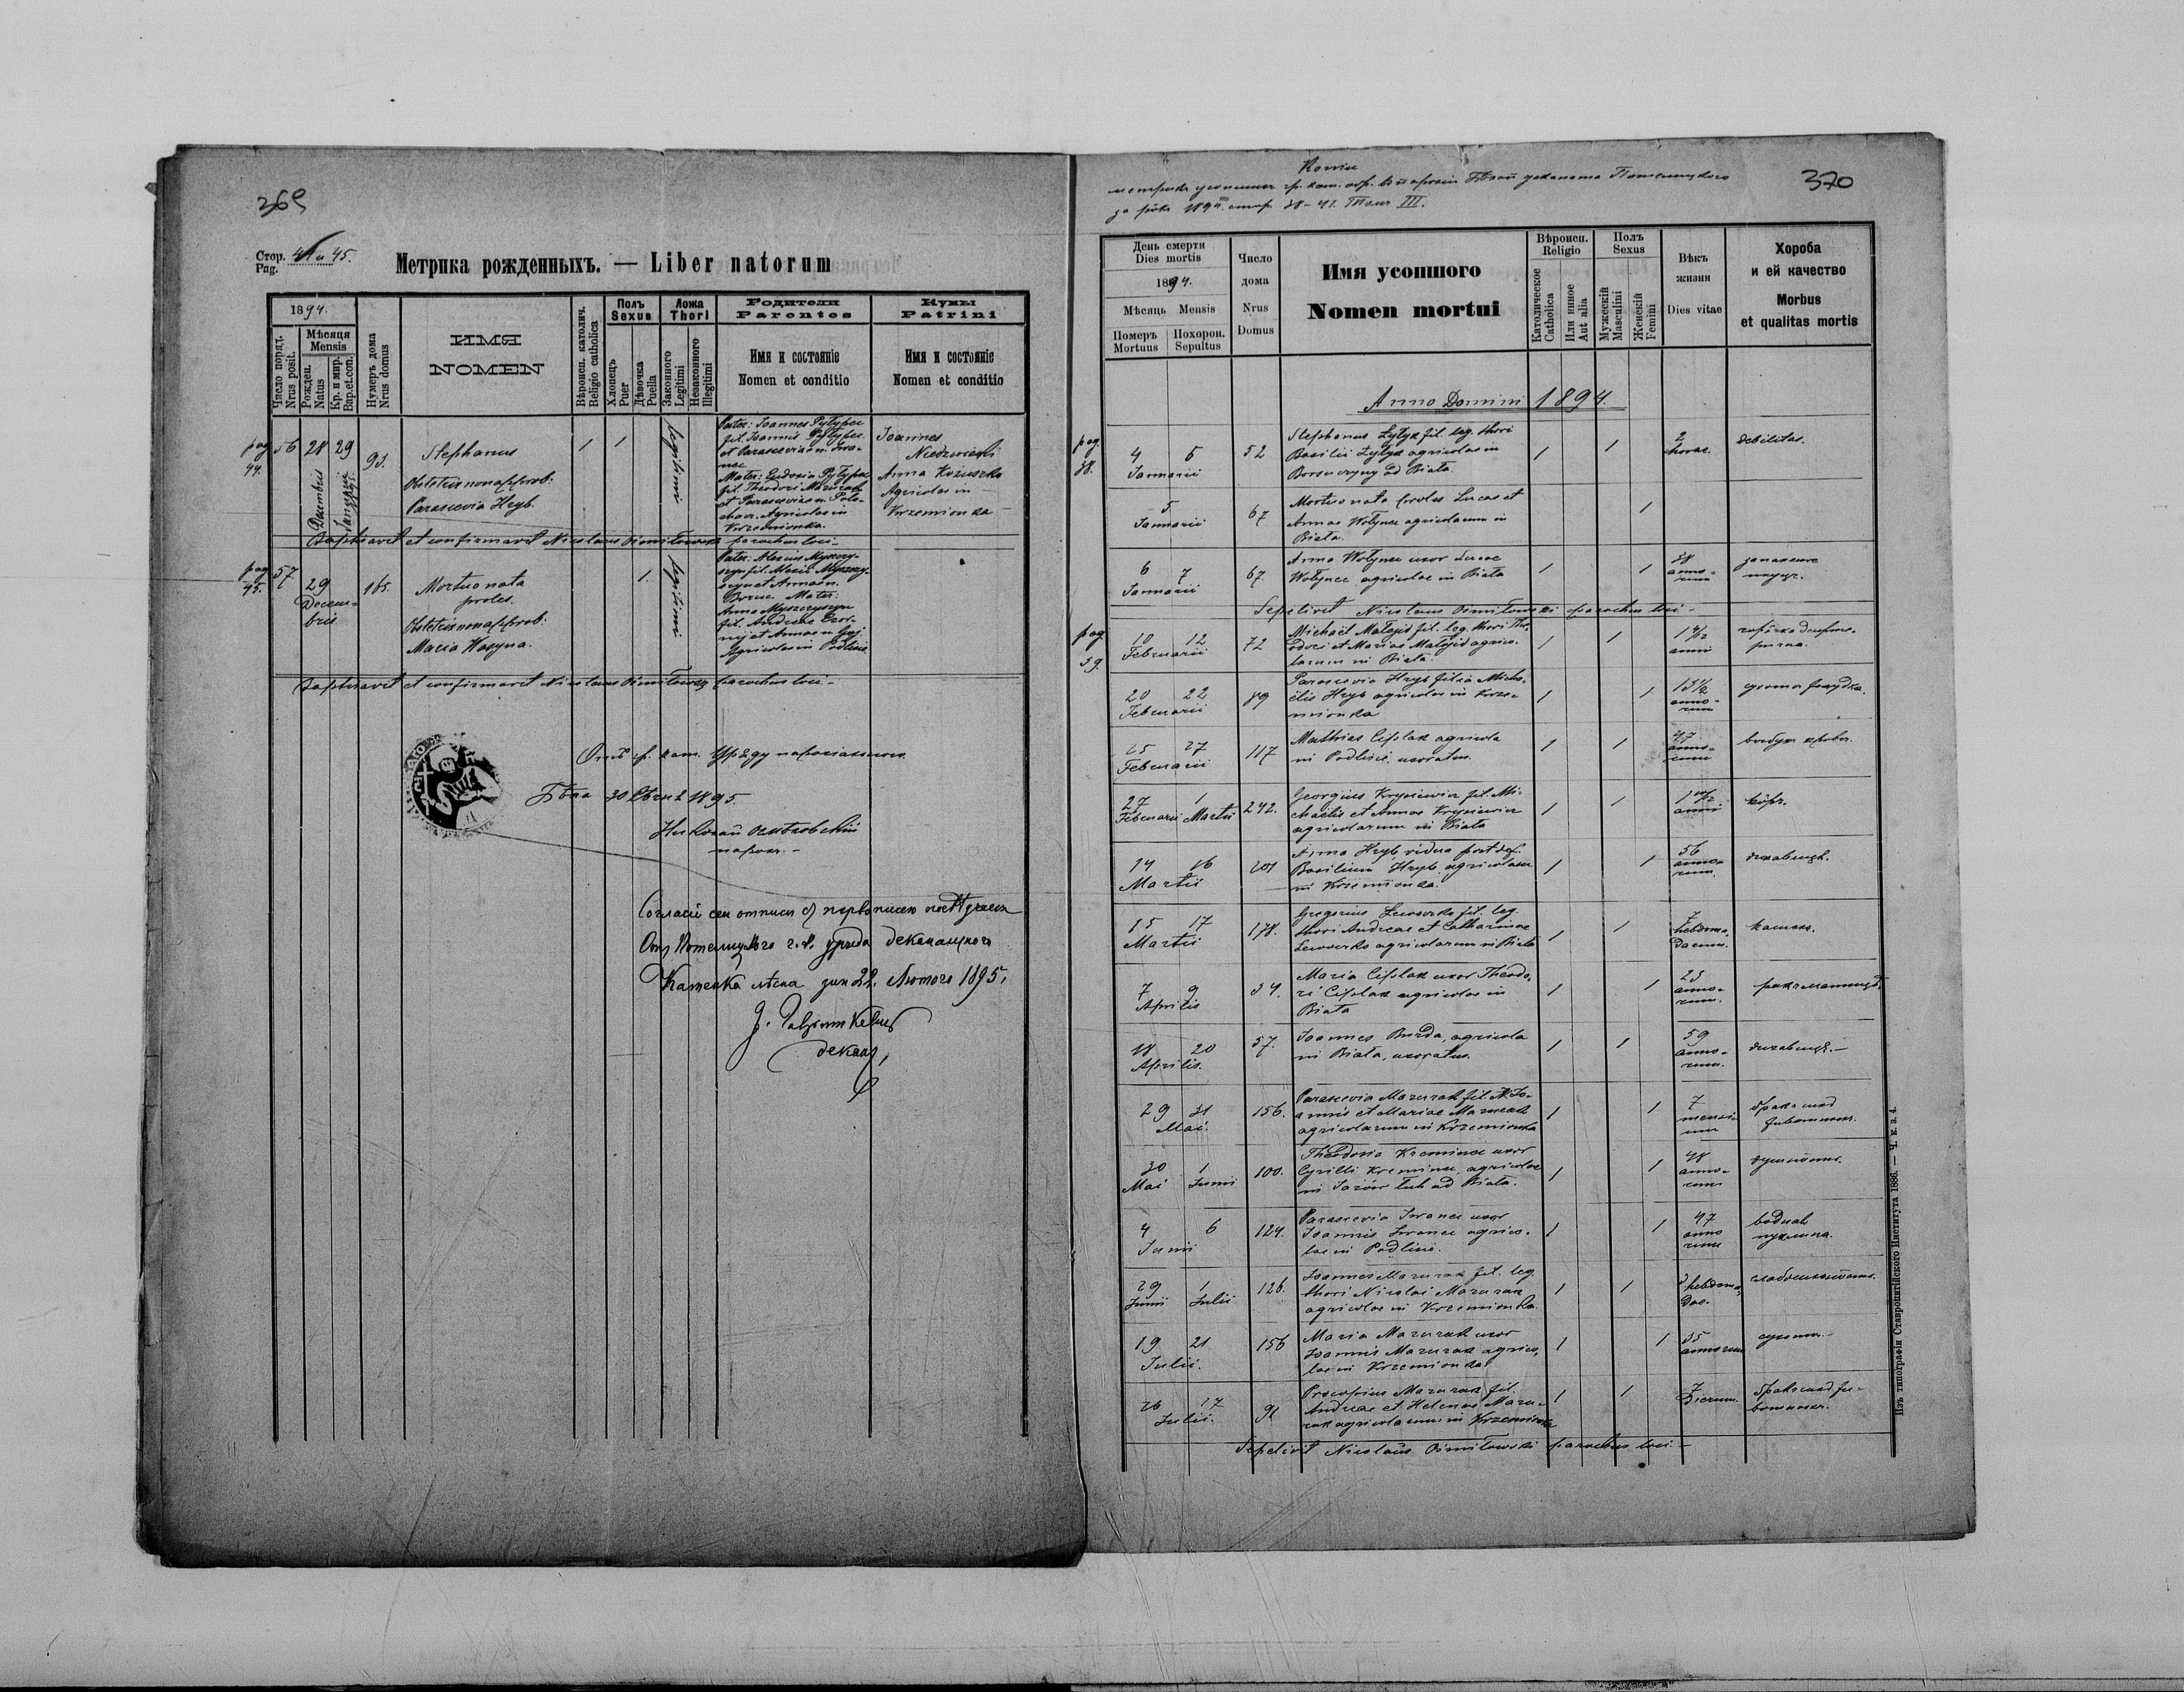 369
Стор. 44 и 45.
Pag.
Метрика рожденныхъ. — Liber natorum
1894.
Число поряд.
Nrus posit.
Мѣсяця
Mensis
Рожден.
Natus
Кр. и мир.
Bap. et con.
Нумеръ дома
Nrus domus
ИМЯ
NOMEN
Вѣроисп. католич.
Religio catholica
Полъ
Sexus
Хлопець
Puer
Дѣвочка
Puella
Ложа
Thori
Законного
Legitimi
Незаконного
Illegitimi
Родители
Parentes
Имя и состояніе
Nomen et conditio
Кумы
Patrini
Имя и состояніе
Nomen et conditio
pag. 44.
56 28 29 93.
Decembris
Stephanus
Obstetrix non approb:
Parascevia Hryb.
1 1
legitimi
Pater: Joannes Pytypec
fil. Joannis Pytypec
et Parasceviae n. Iwa-
nec
Mater: Eudoxia Pytypec
fil. Theodori Mazurak
et Parasceviae n.
Agricolae in
Krzemionka.
Joannes
Niedzwiecki
Anna Kozuszko
Agricolae in
Krzemionka
Baptisavit et confirmavit Nicolaus Osmiłowski parochus loci -
pag. 45.
57 29 165.
Decem-
bris
Mortuo nata
proles.
Obstetrix non approb:
Maria Waryna.
1.
legitimi
Pater: Alexius Myszczy-
szyn fil. Alexii Myszczy-
szyn et Annae n.
Mater:
Anna Myszczyszyn
fil. Andreae
et Annae n.
Agricolae in Podlisie
Baptisavit et confirmavit Nicolaus Osmiłowski parochus loci -
Отъ гр. кат. Уряду парохіального
Бѣла 30 Сѣчня 1895.
Николай Осмѣловскій
парохъ. -
Согласіе сеи отписи съ первописею посвѣдчаеся
Отъ Потелицкого г. к. уряда деканального
Каменка лѣсна дня 22. Лютого 1895.
декан.
370
Копія
метрики усопшихъ гр. кат. обр. въ парохіи Бѣлой деканата Потелицкого
за рôкъ 1894. стор. 38-41. Томъ III.
День смерти
Dies mortis
1894.
Мѣсяць Mensis
Померъ
Mortuus
Похорон.
Sepultus
Число
дома
Nrus
Domus
Имя усопшого
Nomen mortui
Вѣроисп.
Religio
Католическое
Catholica
Или инное
Aut alia
Полъ
Sexus
Мужескій
Masculini
Женскій
Femini
Вѣкъ
жизни
Dies vitae
Хороба
и ей качество
Morbus
et qualitas mortis
Anno Domini 1894.
pag. 38.
4 5 Januarii 52
Stephanus Zytyk fil. leg. thori
Basilii Zytyk agricolae in
ad Biała.
1 1 2 horae. debilitas.
5 Januarii 67
Mortuo nata proles Lucae et
Annae Wołynec agricolarum in
Biała.
1
6 7 Januarii 67.
Anna Wołynec uxor Lucae
Wołynec agricolae in Biała
1 1 38 anno-rum запаленье
Sepelivit Nicolaus Osmiłowski parochus loci -
pag. 39.
10 12 Februarii 72
Michaël Matejid fil. leg. thori The-
odori et Mariae Matejid agrico-
larum in Biała.
1 1 anni горячка
20 22 Februarii 89
Parascevia Hryb filia Micha-
ëlis Hryb agricolae in Krze-
mionka
1 1 13 1/2 anno-rum
25 27 Februarii 117
Mathias Ciplak agricola
in Podlisie, uxoratus.
1 1 47 anno-rum выбухъ крови.
27 Februarii 1 Martii 242.
Georgius Krysiewicz fil. Mi-
chaëlis et Annae Krysiewicz
agricolarum in Biała
1 1 anni кôръ.
14 16 Martii 201
Anna Hryb vidua post def.
Basilium Hryb agricolam
in Krzemionka.
1 1 56 anno-rum. дихавиця.
15 17 Martii 178.
Gregorius Leworko fil. leg.
thori Andreae et Catharinae
Leworko agricolarum in Biała
1 1 7 hebdoma-darum. кашель.
7 9 Aprilis 34.
Maria Ciplak uxor Theodo-
ri Ciplak agricolae in
Biała
1 1 23 anno-rum. ракъ матицѣ.
18 20 Aprilis. 57.
Joannes Burda, agricola
in Biała, uxoratus.
1 1 59 anno-rum. дихавиця. -
29 31 Mai. 156.
Parascevia Mazurak fil. Jo-
annis et Mariae Mazurak
agricolarum in Krzemionka
1 1 7 mensi-um
30 Mai 1 Junii 100.
Theodosia Kreminec uxor
Cyrilli Kreminec, agricolae
in ad Biała.
1 1 48 anno-rum
4 6 Junii 124.
Parascevia Iwanec uxor
Joannis Iwanec agrico-
lae in Podlisie.
1 1 47 anno rum водная пухлина.
29 Junii 1 Julii 126.
Joannes Mazurak fil. leg.
thori Nicolai Mazurak
agricolae in Krzemionka.
1 1 hebdoma-dae.
19 21 Julii. 156
Maria Mazurak uxor
Joannis Mazurak agrico-
lae in Krzemionka.
1 1 35 annorum сухоты. -
26 27 Julii. 91
Procopius Mazurak fil.
Andreae et Helenae Mazu-
rak agricolarum in Krzemionka
1 1 7 Dierum.
Sepelivit Nicolaus Osmiłowski parochus loci -
Изъ типографіи Ставропигійского Института 1886. — Ч. к. з. 4.